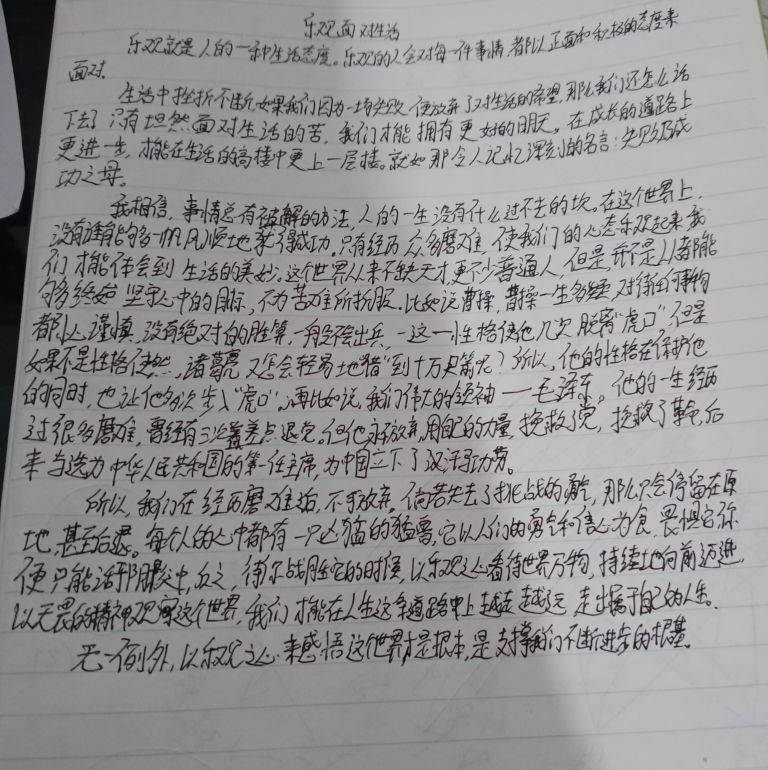 乐观面对生活
乐观就是人的一种生活态度。乐观的人会对每一件事情都以正面和积极的态度来
面对。
生活中挫折不断,如果我们因为一场失败便放弃了对生活的希望,那么我们还怎么活
下去?只有坦然面对生活的苦,我们才能拥有更好的明天。在成长的道路上
更进一步,才能在生活的高楼中更上一层楼。就如那令人记忆深刻的名言:失败乃成
功之母。
我相信,事情总有被解的方法,人的一生没有什么过不去的坎。在这个世界上,
没有谁能够一帆风顺地获得成功。只有经历众多磨难,使我们的心态乐观起来,我
们才能体会到生活的美妙。这个世界从来不缺天才,更不少普通人,但是,并不是人人都能
够始终坚守心中的目标,不为苦难所折服。比如说曹操,曹操一生多疑,对待任何事物
都小心谨慎,没有绝对的胜算,一般不会出兵,这一性格使他几次脱离“虎口”,但是
如果不是性格使然,诸葛亮又怎会轻易地“借”到十万只箭呢?所以,他的性格在保护他
的同时,也让他多次步入“虎口”。再比如说,我们伟大的领袖——毛泽东。他的一生经历
过很多磨难,曾经有三次差点退党。但他永不放弃,用自己的力量,挽救了党,挽救了革命,后
来当选为中华人民共和国的第一任主席,为中国立下了汉汗功劳。
所以,我们在经历磨难后,不可放弃,倘若失去了挑战的勇气,那么只会停留在原
地,甚至后退。每个人的心中都有一只凶猛的猛兽,它以人们的勇气和信心为食,畏惧它你
便只能活于阴影中,反之,待你战胜它的时候,以乐观之心看待世界万物,持续地向前迈进,
以无畏的精神观察这个世界,我们才能在人生这条道路中上越走越远,走出属于自己的人生。
无一例外,以乐观之心来感悟这个世界才是根本,是支撑我们不断进步的根基。